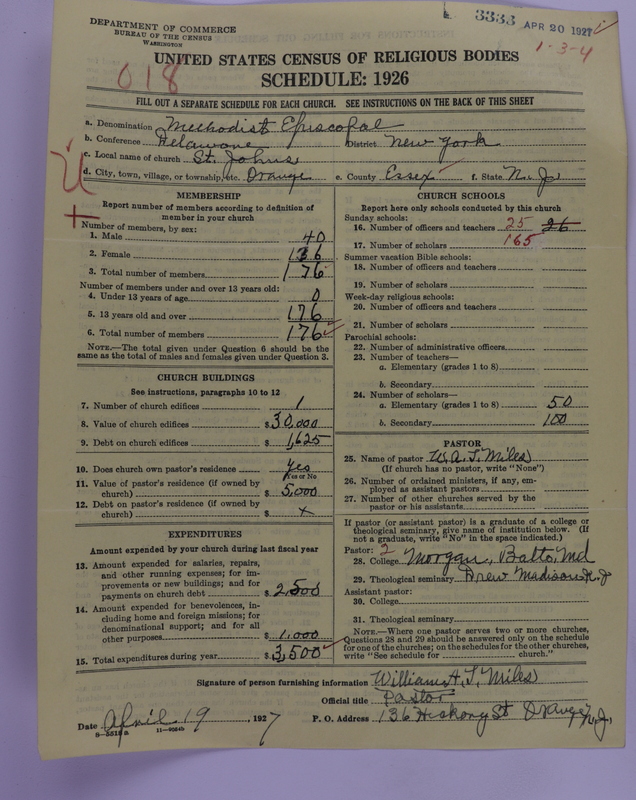 3333 APR 20 1927
DEPARTMENT OF COMMERCE
BUREAU OF THE CENSUS
WASHINGTON
1-3-4
UNITED STATES CENSUS OF RELIGIOUS BODIES
018
SCHEDULE: 1926
FILL OUT A SEPARATE SCHEDULE FOR EACH CHURCH. SEE INSTRUCTIONS ON THE BACK OF THIS SHEET
a. Denomination Methodist Episcopal
b. Conference Delaware District New York
c. Local name of church St. Johns
d. City, town, village, or township, etc. Orange e. County Essex f. State N. J.
MEMBERSHIP
Report number of members according to definition of
member in your church
Number of members, by sex:
1. Male 40
2. Female 136
3. Total number of members 176
Number of members under and over 13 years old:
4. Under 13 years of age 0
5. 13 years old and over 176
6. Total number of members 176
NOTE.—The total given under Question 6 should be the
same as the total of males and females given under Question 3.
CHURCH BUILDINGS
See instructions, paragraphs 10 to 12
7. Number of church edifices 1
8. Value of church edifices $30,000
9. Debt on church edifices $1,625
10. Does church own pastor's residence yes
Yes or No
11. Value of pastor's residence (if owned by
church) $5,000
12. Debt on pastor's residence (if owned by
church) $ x
EXPENDITURES
Amount expended by your church during last fiscal year
13. Amount expended for salaries, repairs,
and other running expenses; for im-
provements or new buildings; and for
payments on church debt $2,500
14. Amount expended for benevolences, in-
cluding home and foreign missions; for
denominational support; and for all
other purposes $1,000
15. Total expenditures during year $3,500
CHURCH SCHOOLS
Report here only schools conducted by this church
Sunday schools:
16. Number of officers and teachers 25 26
17. Number of scholars 165
Summer vacation Bible schools:
18. Number of officers and teachers
19. Number of scholars
Week-day religious schools:
20. Number of officers and teachers
21. Number of scholars
Parochial schools:
22. Number of administrative officers
23. Number of teachers—
a. Elementary (grades 1 to 8)
b. Secondary
24. Number of scholars—
a. Elementary (grades 1 to 8) 50
b. Secondary 100
PASTOR
25. Name of pastor W. A. T. Miles
(If church has no pastor, write "None")
26. Number of ordained ministers, if any, em-
ployed as assistant pastors
27. Number of other churches served by the
pastor or his assistants
If pastor (or assistant pastor) is a graduate of a college or
theological seminary, give name of institution below. (If
not a graduate, write "No" in the space indicated.)
Pastor: 2
28. College Morgan, Balto, Md
29. Theological seminary Drew Madison N. J
Assistant pastor:
30. College
31. Theological seminary
NOTE.—Where one pastor serves two or more churches,
Questions 28 and 29 should be answered only on the schedule
for one of the churches; on the schedules for the other churches,
write "See schedule for church."
Signature of person furnishing information William A. T. Miles
Official title Pastor
Date April 19, 1927 P. O. Address 136 Hickory St Orange, N. J.